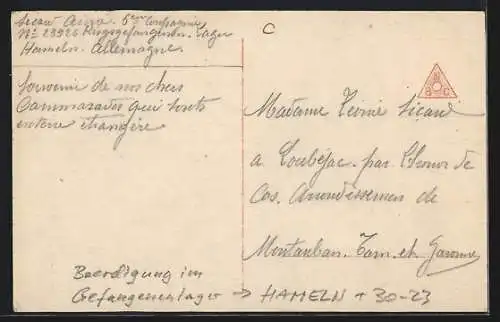 Sicard 5em Compagnie
No 23926 Kriegsgefangenen Lager
Hameln. Allemagne.
Souvenir de nos chers
Cammarades qui sont
enterre étrangère
C
B C
Madame Sicard
a Loubéjac par L'honor de
Cos. Arrondissemen de
Montauban. Tarn et Garonne
Beerdigung im
Gefangenenlager → HAMELN + 30-23